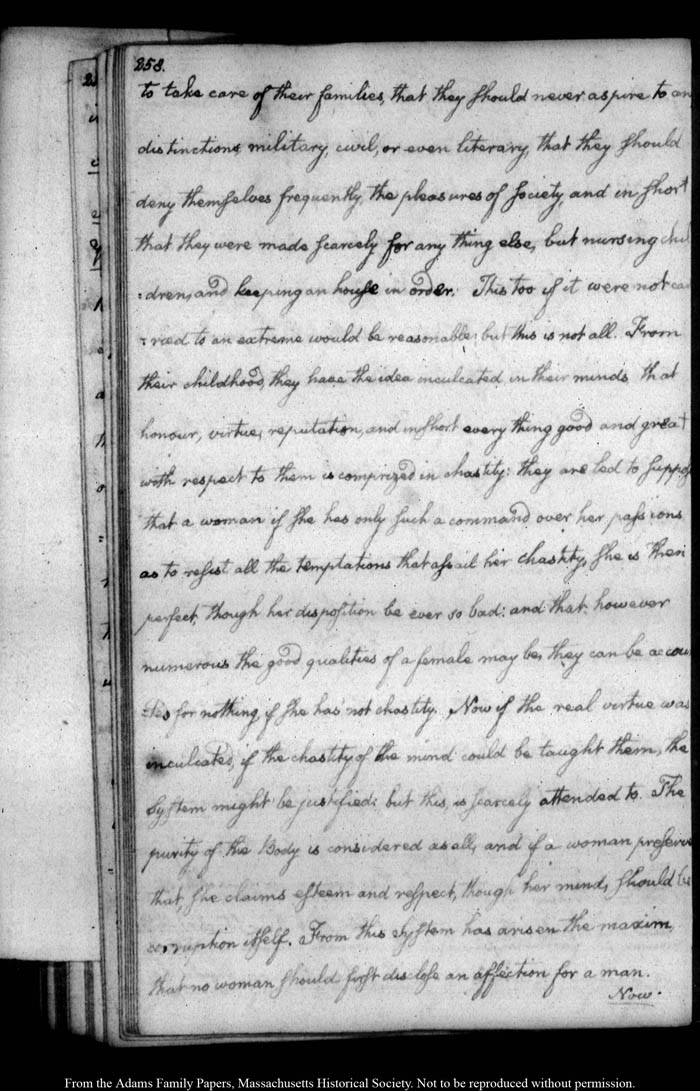 258.
to take care of their families, that they should never aspire to
distinctions military, civil, or even literary, that they should
deny themselves frequently, the pleasures of society, and in short
that they were made scarcely for any thing else, but nursing chil
:dren, and keeping an house in order. This too if it were not car
:ried to an extreme would be reasonable; but this is not all. From
their childhood, they have the idea inculcated in their minds, that
honour, virtue, reputation, and in short every thing good and great
with respect to them is comprized in chastity: they are led to suppose
that a woman if she has only such a command over her passions
as to resist all the temptations that assail her chastity, she is then
perfect though her disposition be ever so bad: and that however
numerous the good qualities of a female may be, they can be accoun
:ted for nothing, if she has not chastity. Now if the real virtue was
inculcated, if the chastity of the mind could be taught them, the
system might be justified; but this, is scarcely attended to. The
purity of the Body is considered as all, and if a woman preserves
that, she claims esteem and respect, though her mind, should be
corruption itself. From this system has arisen the maxim,
that no woman should first disclose an affection for a man.
Now
From the Adams Family Papers, Massachusetts Historical Society. Not to be reproduced without permission.